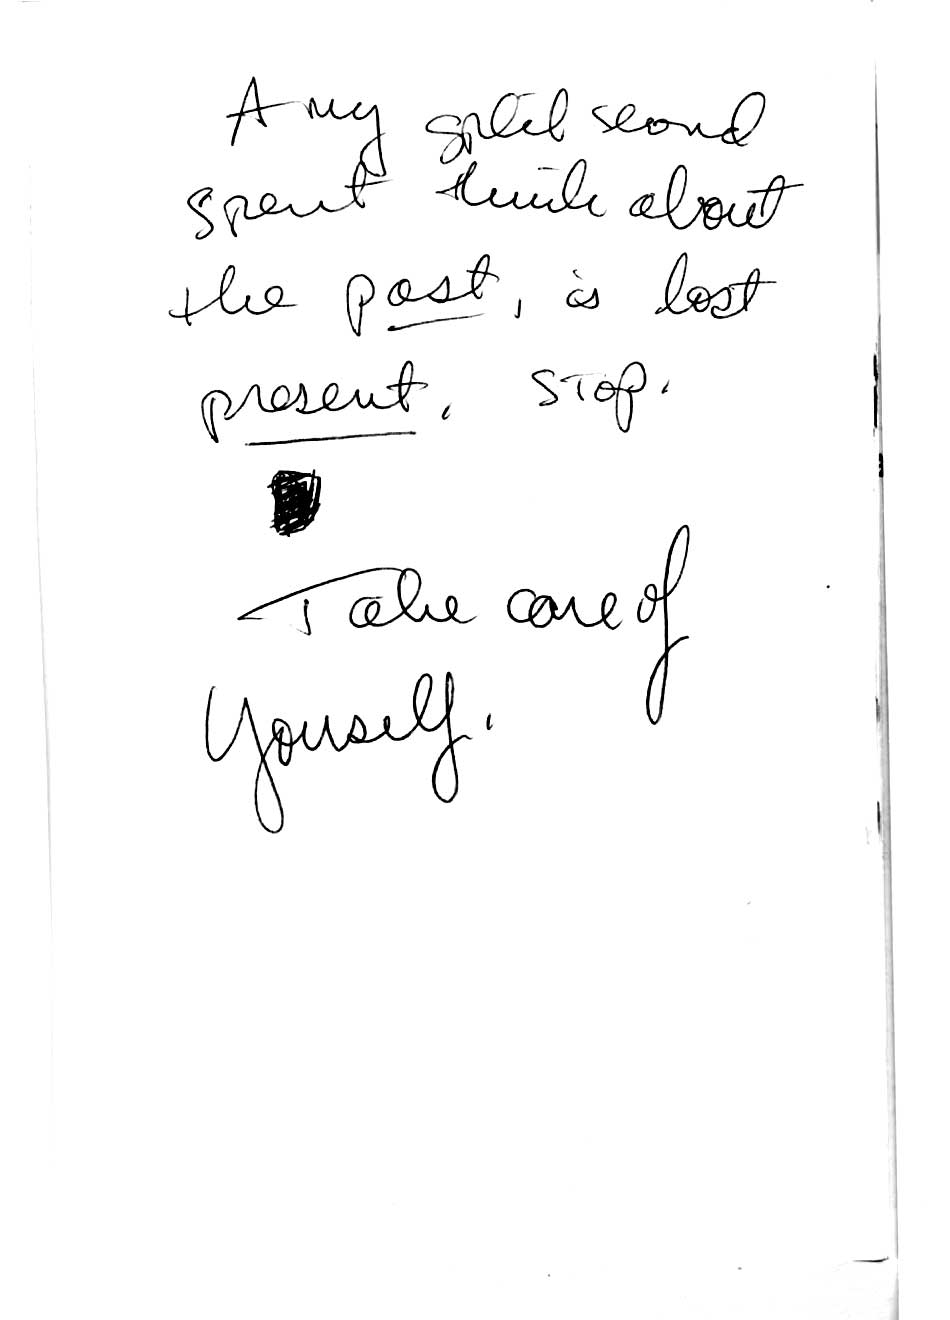 Any split second
spent think about
the past, is lost
present. STOP.
Take care of
Yourself.